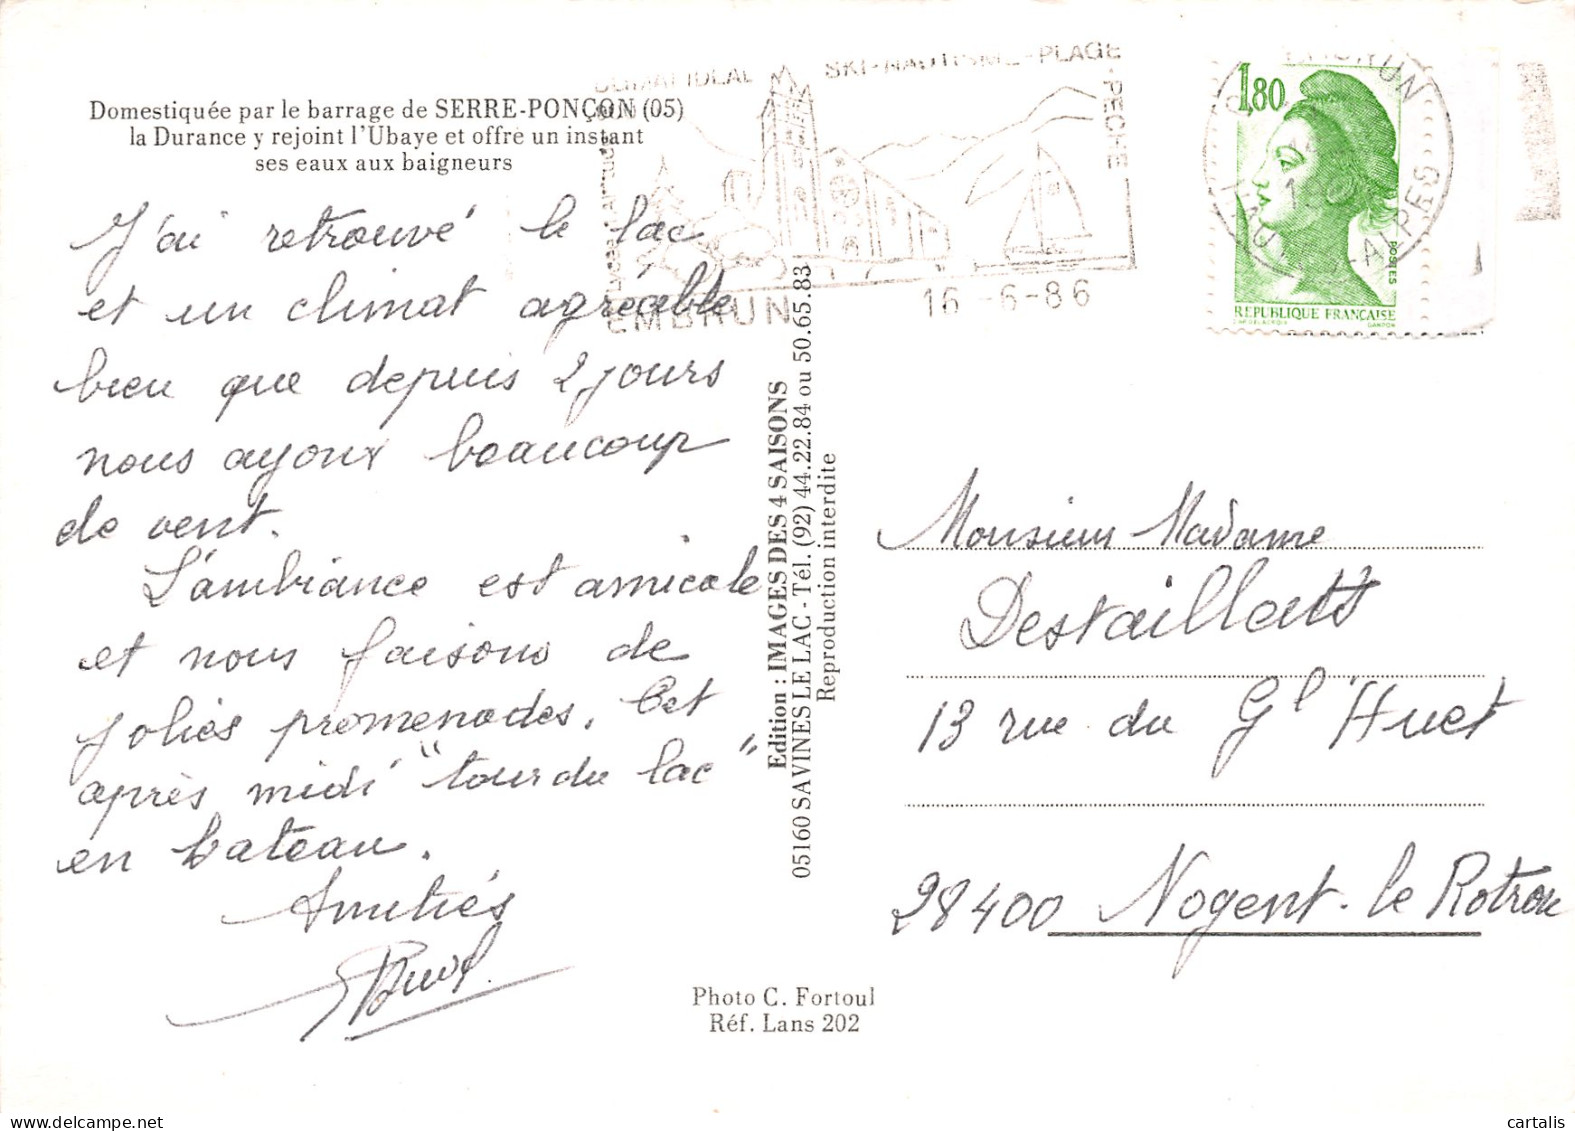 Domestiquée par le barrage de SERRE-PONÇON (05)
la Durance y rejoint l'Ubaye et offre un instant
ses eaux aux baigneurs
J'ai retrouvé le lac
et un climat agréable
bien que depuis 2 jours
nous ayons beaucoup
de vent.
L'ambiance est amicale
et nous faisons de
jolies promenades. Cet
après midi "tour du lac"
en bateau.
Amitiés
CLIMAT IDEAL SKI-NAUTISME-PLAGE
-PECHE-
EMBRUN
16-6-86
EMBRUN
HAUTES-ALPES
1,80
POSTES
REPUBLIQUE FRANÇAISE
GANDON
Edition : IMAGES DES 4 SAISONS
05160 SAVINES LE LAC - Tél. (92) 44.22.84 ou 50.65.83
Reproduction interdite
Monsieur Madame
13 rue du Gl Huet
28400 Nogent-le Rotrou
Photo C. Fortoul
Réf. Lans 202
cartalis
www.delcampe.net